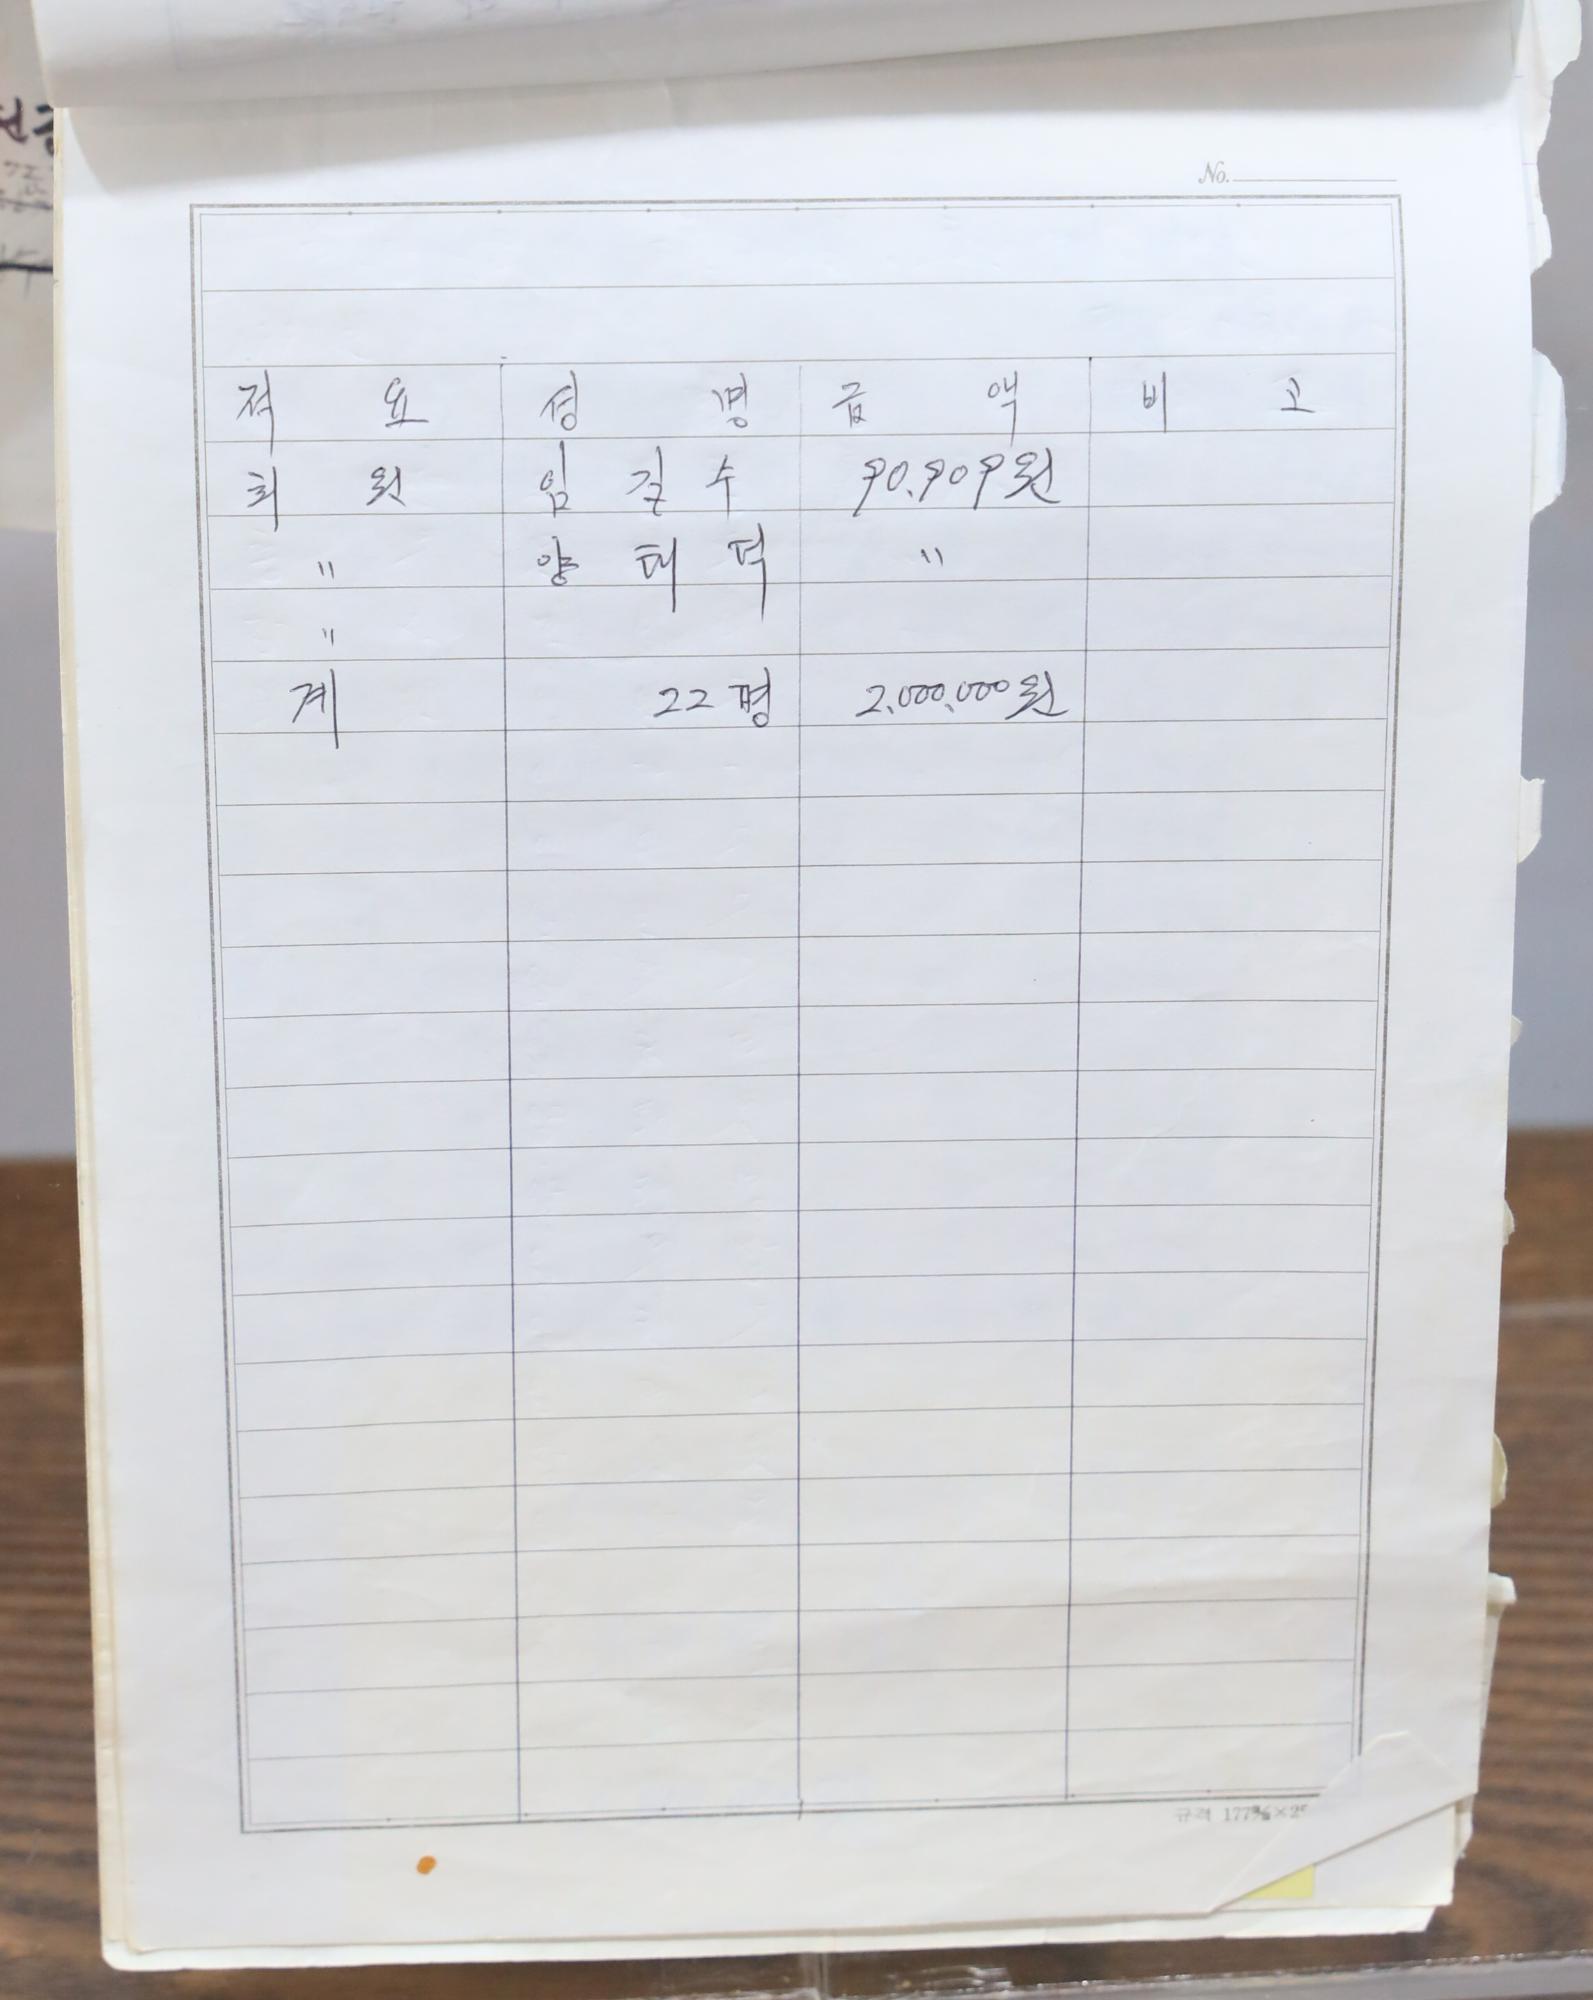 No.
적 요 성 명 금 액 비 고
회 원 임 길 수 90.909원
" 양 태 덕 "
"
계 22명 2.000.000원
규격 177